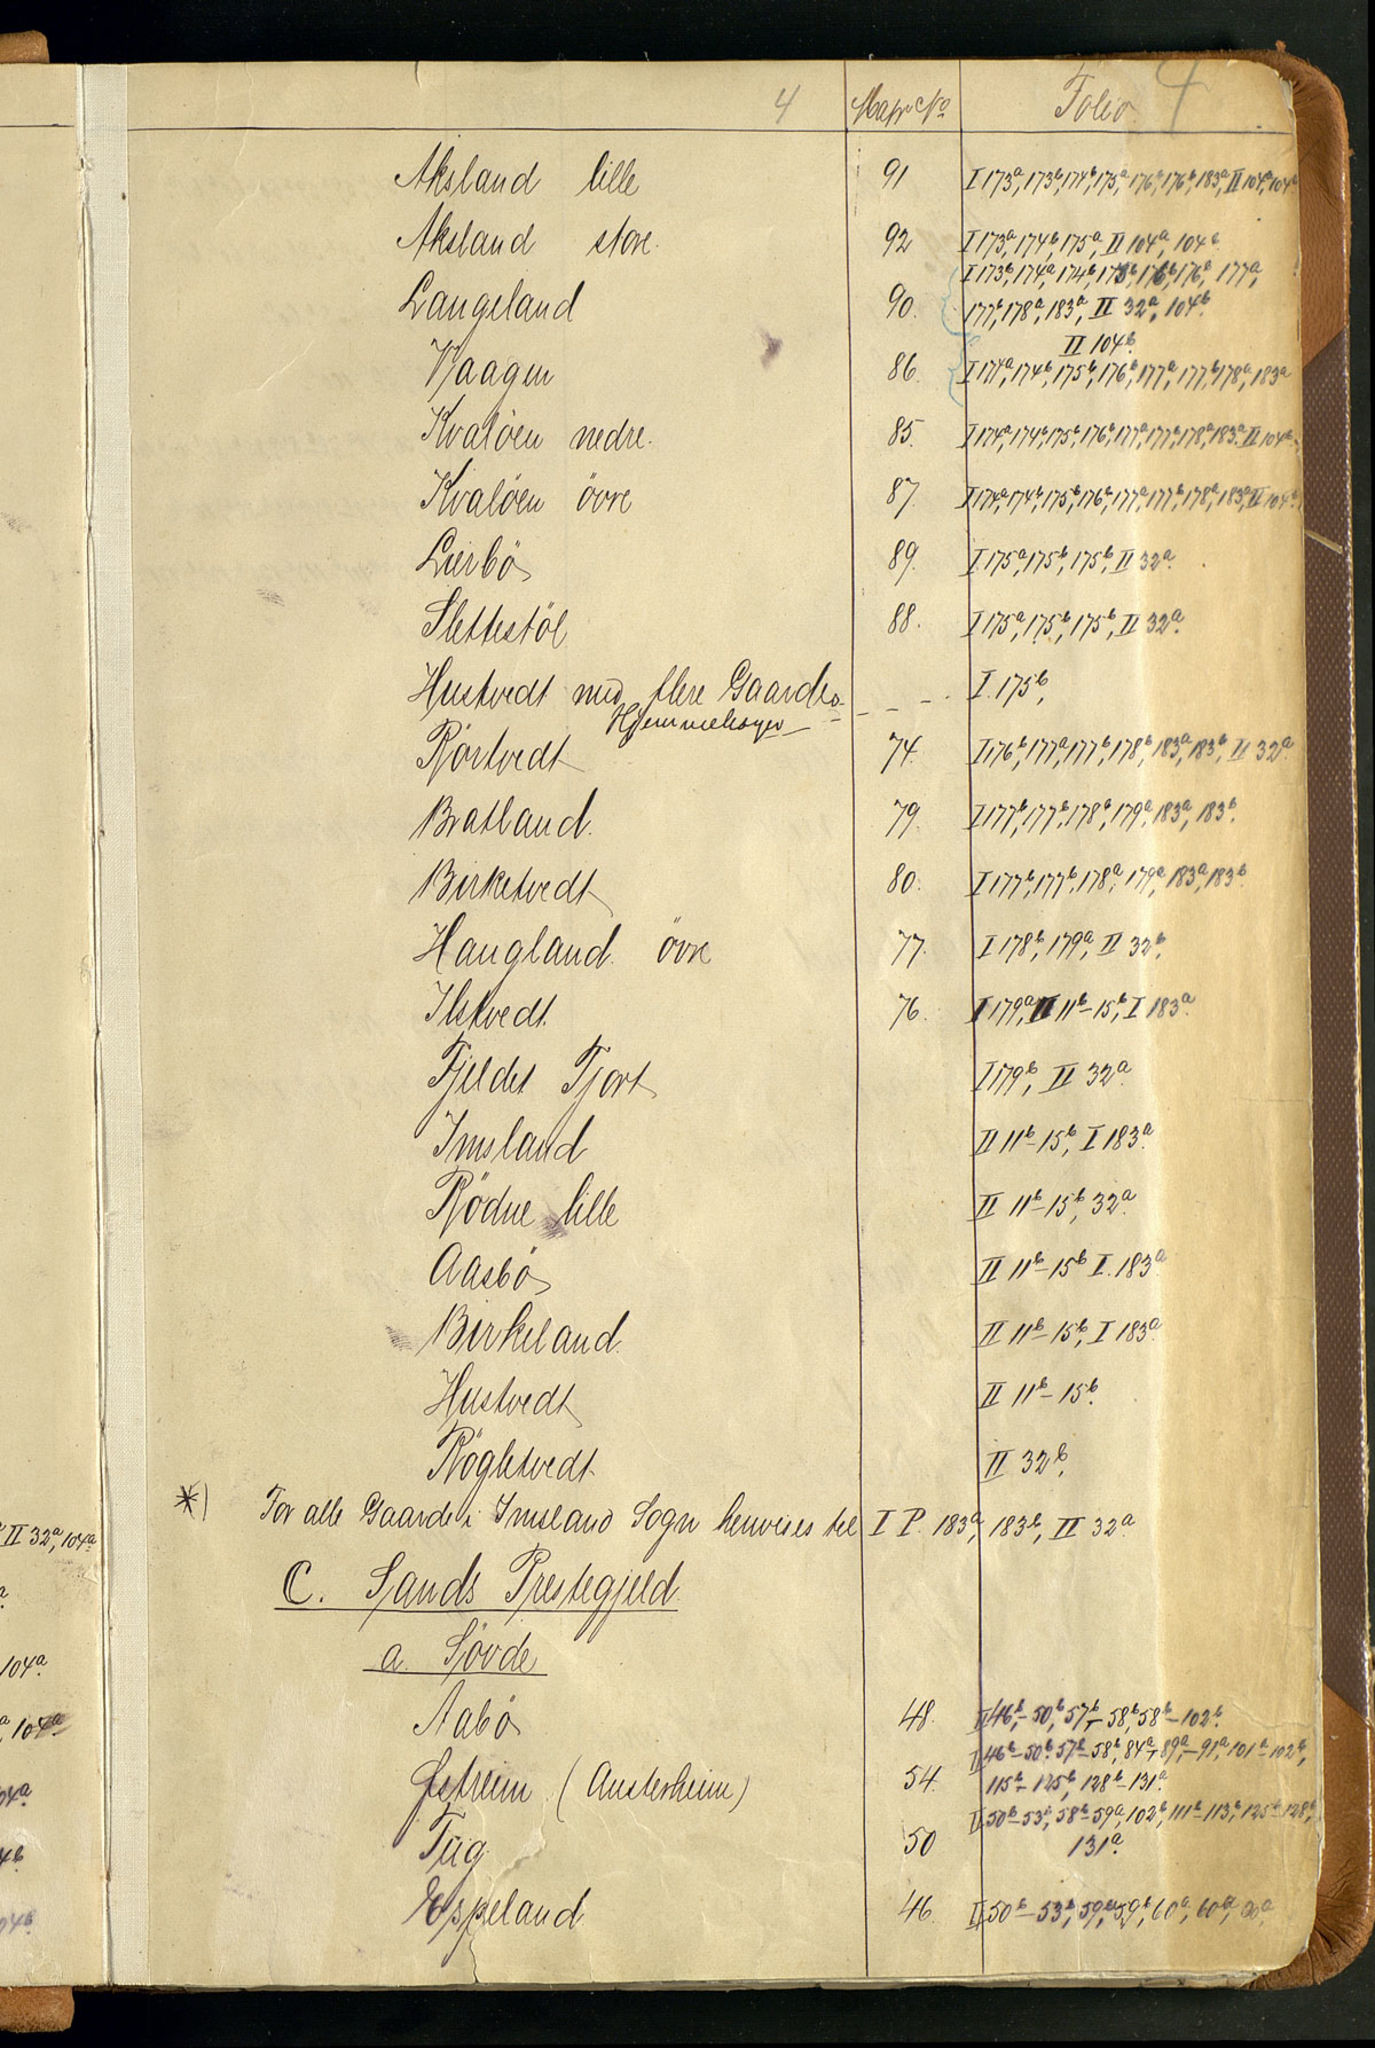 4 Matr No Folio 4
Aksland lille 91 I 173a, 173b, 174b, 175a, 176a, 176b, 183a, II 104a, 104b
Aksland store. 92 I 173a, 174b, 175a, II 104a, 104b.
I 173b, 174a, 174b, 175b, 176b, 176a, 177a,
Langeland 90. 177b, 178a, 183a, II 32a, 104b.
II 104b.
Vaagen 86. I 174a, 174b, 175b, 176b, 177a, 177b, 178a, 183a
Kvalöen nedre. 85. I 174a, 174b, 175b, 176b, 177a, 177b, 178a, 183a. II 104b.
Kvalöen övre 87. I 174a, 174b, 175b, 176b, 177a, 177b, 178a, 183a, II 104b.
Lierbö 89. I 175a, 175b, 175b, II 32a.
Slettestöl 88. I 175a, 175b, 175b, II 32a.
Hustvedt med flere Gaarde - - - - I. 175b,
Hjemmehagen
Rörtvedt 74. I 176b, 177a, 177b, 178b, 183a, 183b, II 32a.
Bratland. 79. I 177b, 177b, 178b, 179a, 183a, 183b.
Birketvedt 80. I 177b, 177b, 178a, 179a, 183a, 183b.
Haugland. övre 77. I 178b, 179a, II 32b,
Ilstvedt. 76. I 179a, II 11b-15b, I 183a.
Fjeldet Tjort I 179b, II 32a.
Imsland II 11b-15b, I 183a.
Rödne lille II 11b-15b, 32a.
Aasbö II 11b-15b I. 183a.
Birkeland. II 11b-15b, I 183a.
Hustvedt II 11b-15b.
Röghtvedt. II 32b,
*) For alle Gaarde i Imsland Sogn henvises til I P. 183a, 183b, II 32a.
C. Sands Prestegjeld.
a. Sövde
Aabö 48. II 46b-50b, 57b-58b, 58b-102b.
II 46b-50b. 57b-58b, 84a-89a-91a, 101a-102b,
Östreim (Austerheim) 54. 115b-125b, 128b-131a.
II 50b-53b, 58b-59a, 102b, 111b-113b, 125b-128b,
Tüg. 50 131a.
Espeland 46. II 50b-53b, 59a, 59b, 60a, 60a,
II 32a, 104a
104a.
104a
04a.
4b.
04b.